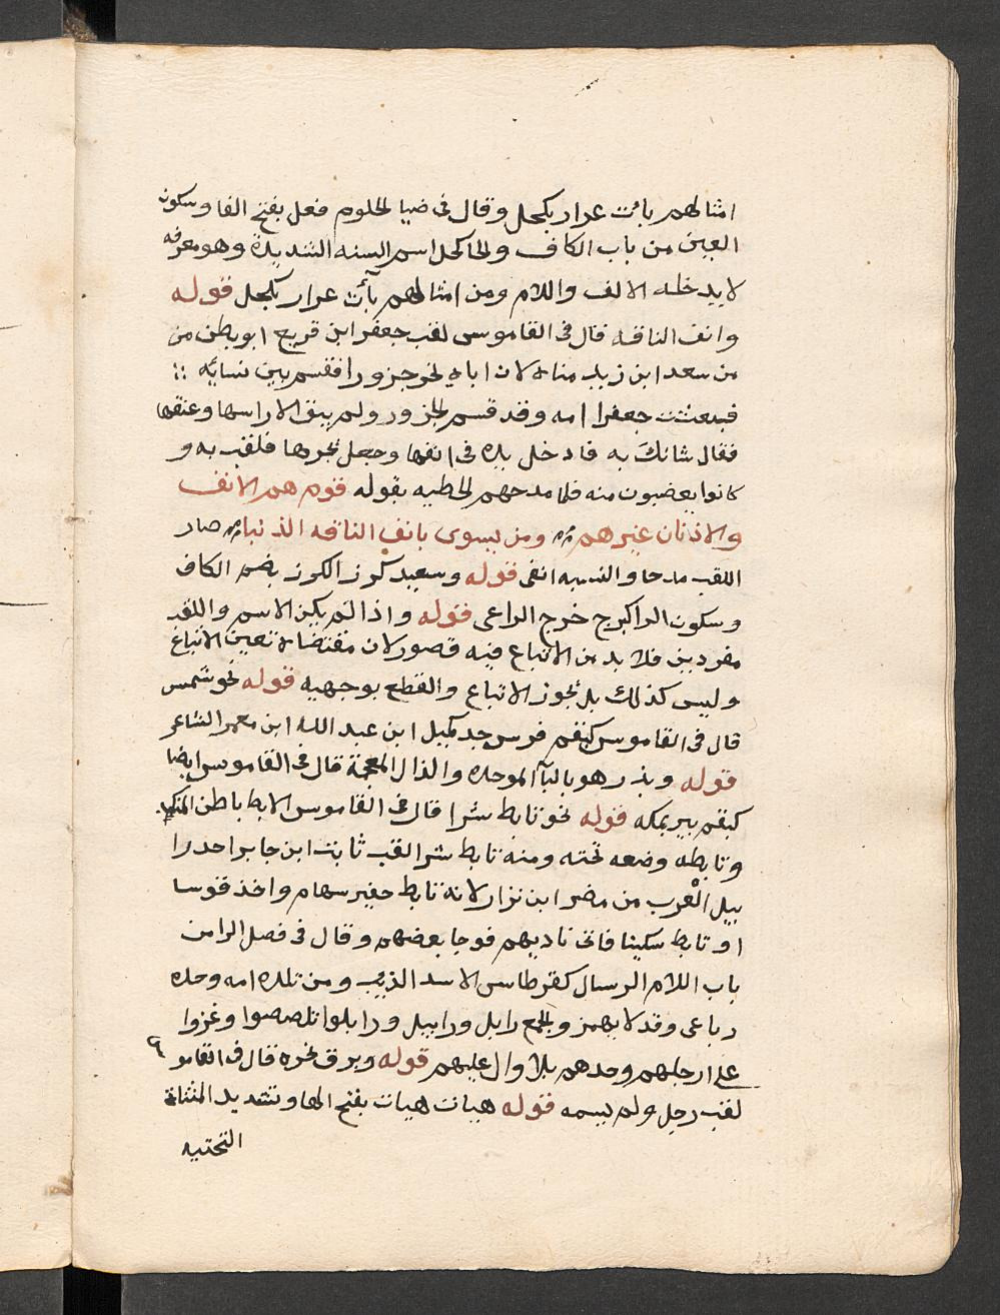 امثالهم بائت عرار بكحل وقال في ضيا الحلوم فعل بفتح الفا وسكون
العين من باب الكاف والحا كحل اسم السنه الشديدة وهو معرفه
لا يدخله الالف واللام ومن امثالهم بآئت عرار بكحل قوله
وانف الناقه قال في القاموس لقب جعفر ابن قريع ابو بطن من
من سعد ابن زيد مناة لان اباه نحر جزورا فقسم بين نسايه
فبعثت جعفرا امه وقد قسم الجزور ولم يبق الا راسها وعنقها
فقال شانك به فادخل يده في انفها وجعل يجرها فلقب به و
كانوا يغضبون منه فلما مدحهم الحطيه بقوله قوم هم الانف
والاذناب غيرهم ومن يسوى بانف الناقه الذنبا صار
اللقب مدحا والنسبه انفي قوله وسعيد كرز الكرز بضم الكاف
وسكون الرا كبرج خرج الراعي قوله واذا لم يكن الاسم واللقب
مفردين فلا بد من الاتباع فيه قصور لان مقتضاة تعين الاتباع
وليس كذلك بل يجوز الاتباع والقطع بوجهيه قوله نحو شمس
قال في القاموس كبقم فرس جد جميل ابن عبد الله ابن معمر الشاعر
قوله وبذر هو بالبآ الموحده والذال المعجمة قال في القاموس ايضا
كبقم بير بمكه قوله نحو تابط شرا قال في القاموس الابط باطن المنكب
وتابطه وضعه تحته ومنه تابط شرا لقب ثابت ابن جابر احد را
بيل العرب من مضر ابن نزار لانه تابط جفير سهام واخذ قوسا
او تابط سكينا فاتى ناديهم فوجا بعضهم وقال في فصل الرا من
باب اللام الرسال كقرطاس الاسد الذيب ومن تلده امه وحده
رباعي وقد لا يهمز والجمع رابل ورابيل ورابلوا تلصصوا وغزوا
على ارجلهم وحدهم بلا وال عليهم قوله وبرق نحره قال في القامو
لقب رجل ولم يسمه قوله هيان هيان بفتح الها وتشديد المثناة
التحتيه